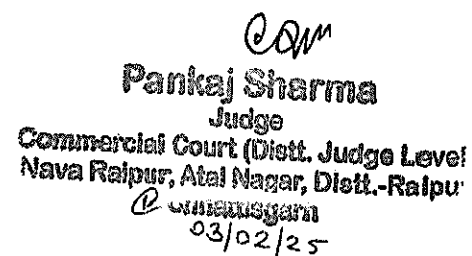 Pankaj Sharma
Judge
Commercial Court (Distt. Judge Level
Nava Raipur, Atal Nagar, Distt.-Raipu
03/02/25